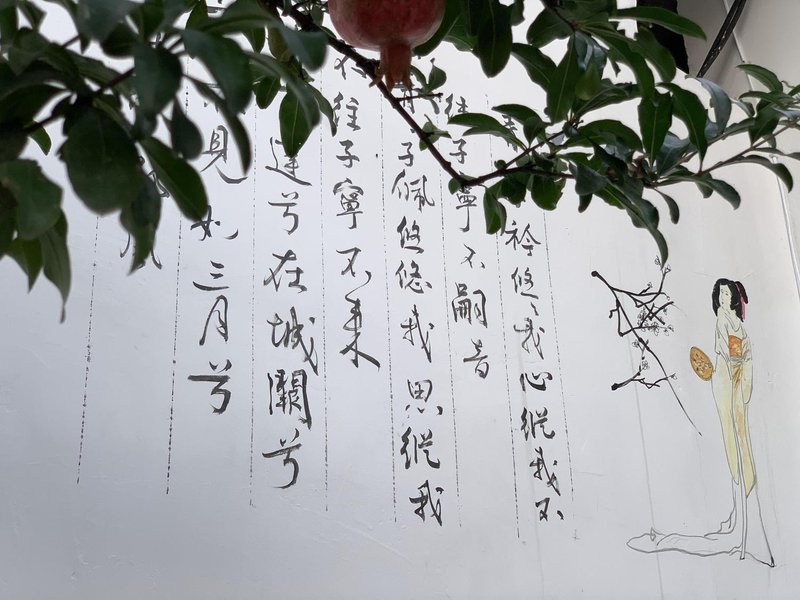 衿悠々我心縱我不
往子寧不嗣音
子佩悠悠我思縱我
不往子寧不来
達兮在城闕兮
見如三月兮